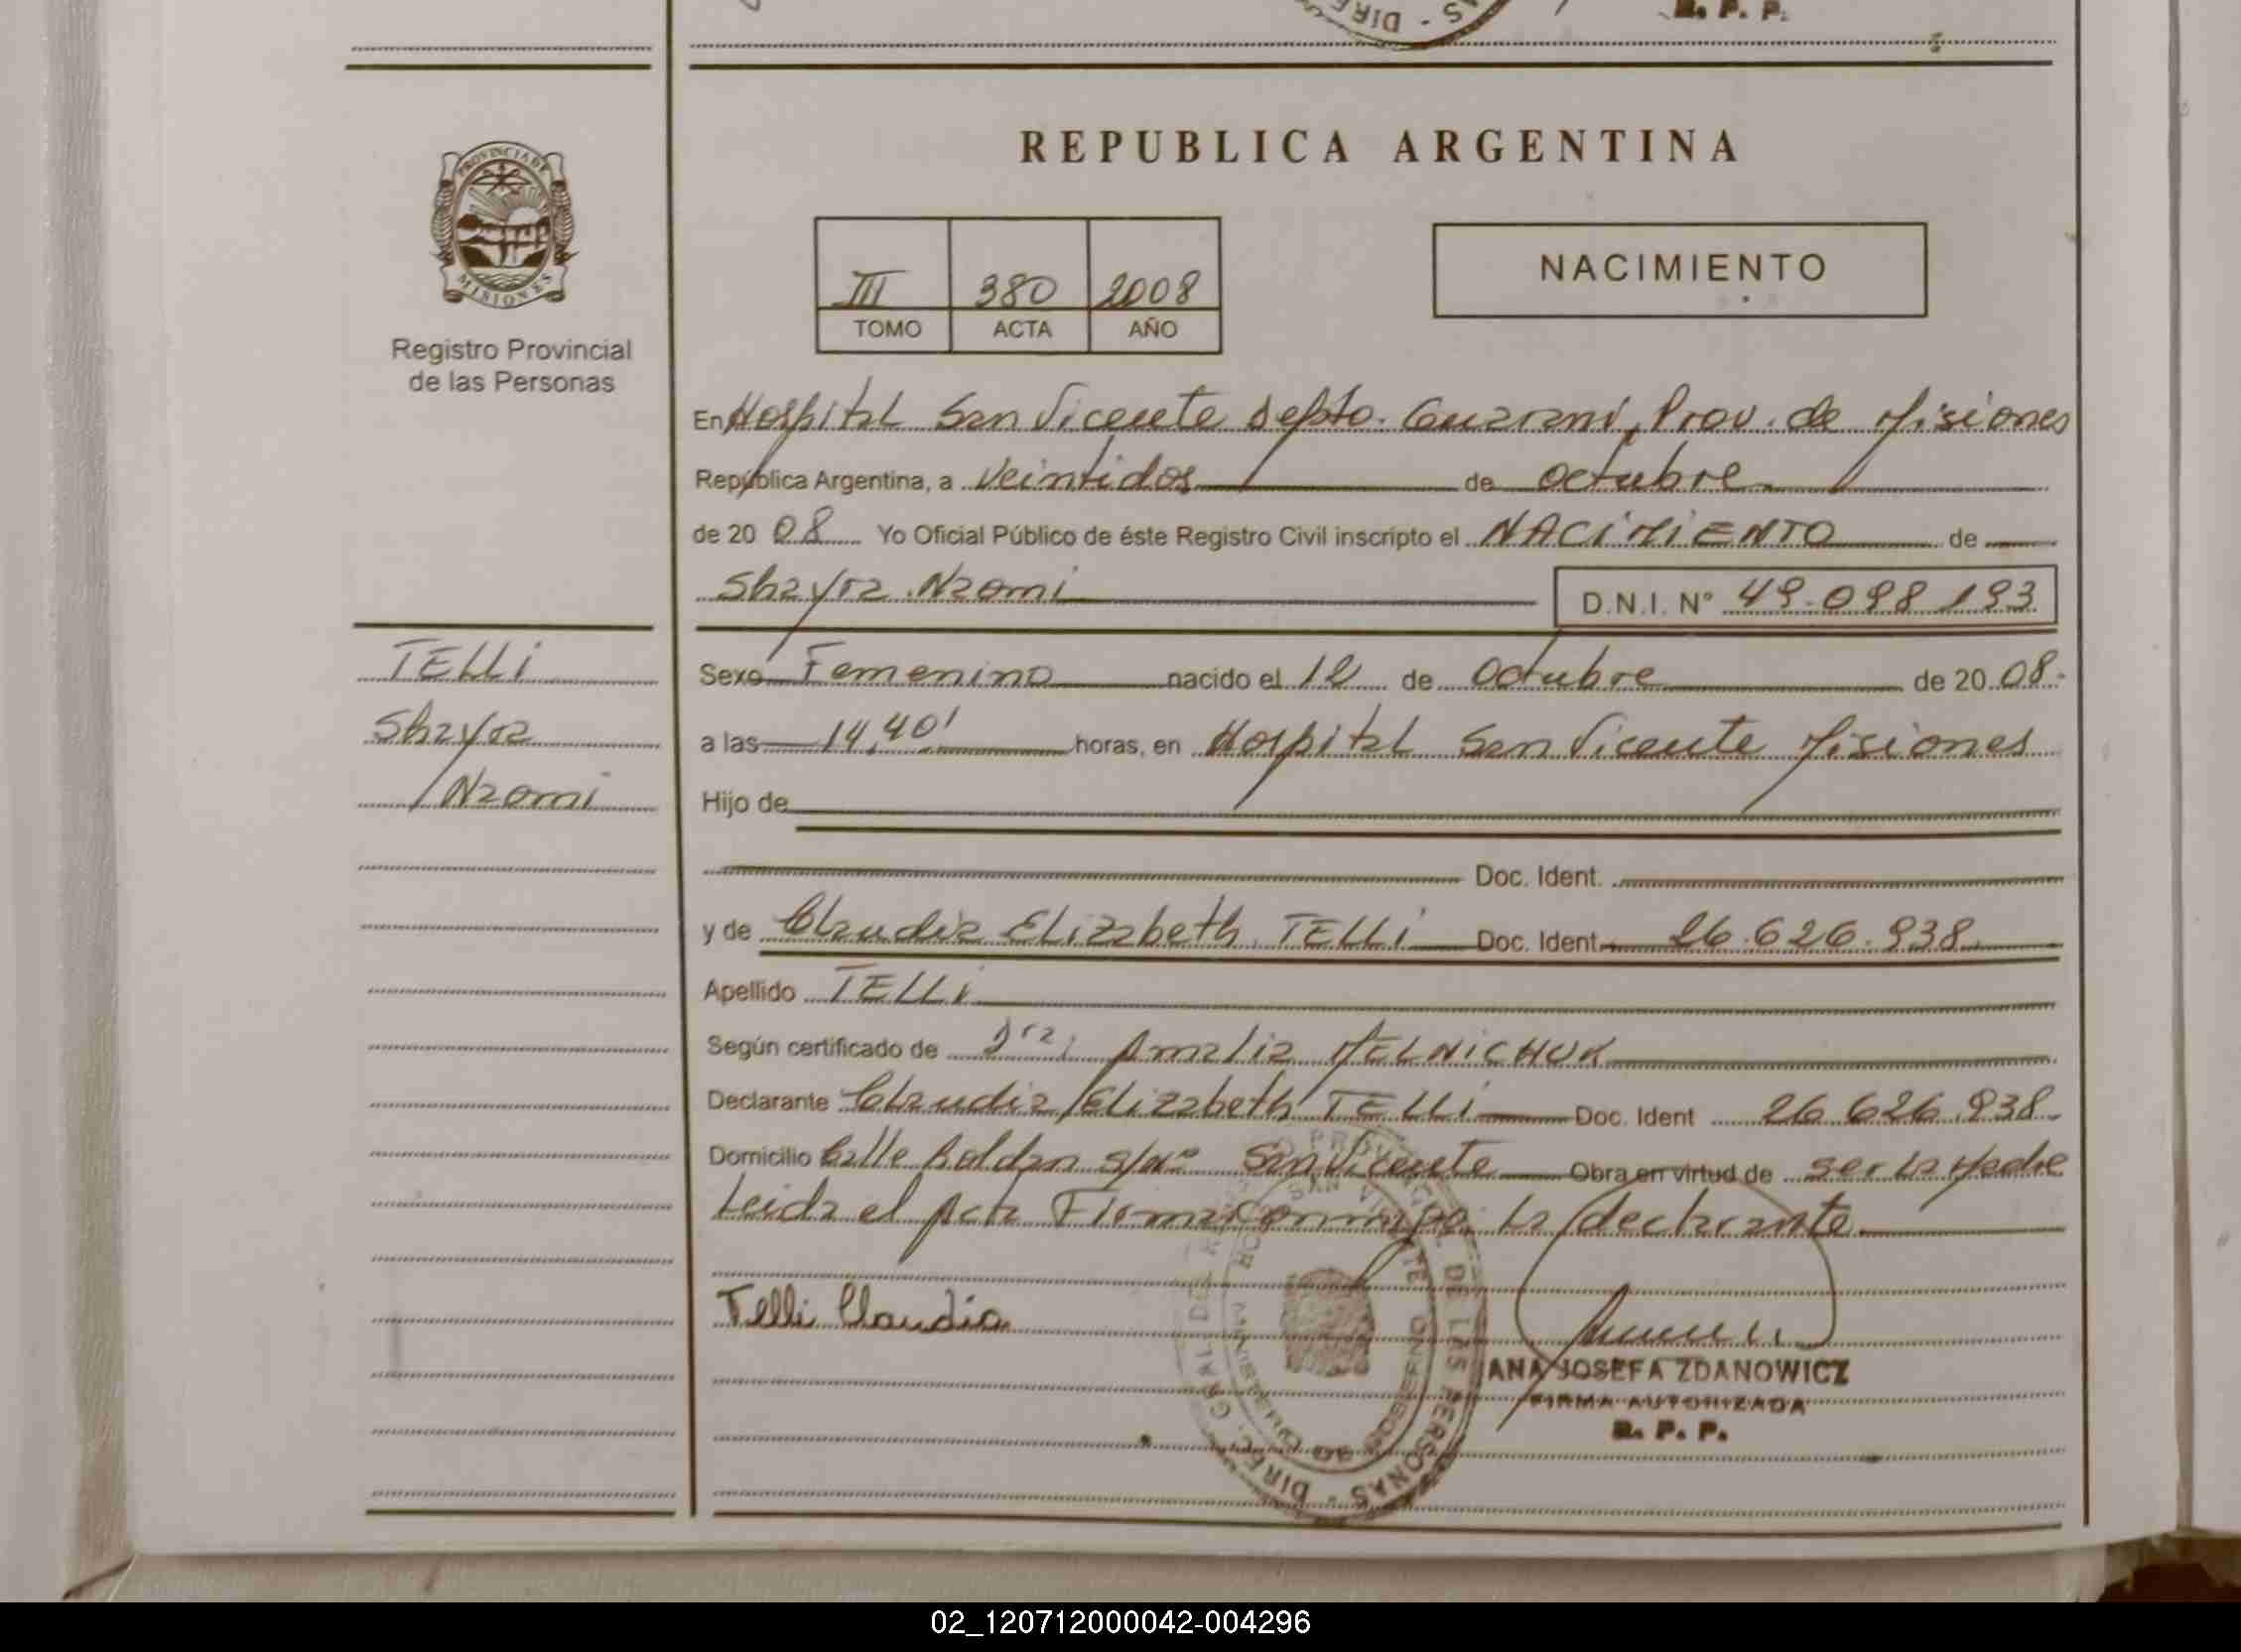 R. P. P.
PROVINCIA DE
MISIONES
Registro Provincial
de las Personas
TELLi
Shayra
Naomi
REPUBLICA ARGENTINA
III 380 2008
TOMO ACTA AÑO
NACIMIENTO
En Hospital San Vicente Depto. Guarani, Prov. de Misiones
República Argentina, a Veintidos de octubre
de 20 08 Yo Oficial Público de éste Registro Civil inscripto el NACiMiENTO de
Shayra Naomi D.N.I. N° 49.098.193
Sexo Femenino nacido el 12 de Octubre de 20 08.
a las 14,40' horas, en Hospital San Vicente Misiones
Hijo de
Doc. Ident.
y de Claudia Elizabeth TELLi Doc. Ident. 26.626.938
Apellido TELLi
Según certificado de Dra: Amalia MELNiCHUK
Declarante Claudia Elizabeth TELLi Doc. Ident 26.626.938
Domicilio Calle Roldan s/nº San Vicente Obra en virtud de ser la Madre
Leida el Acta Firma conmigo la declarante.
Telli Claudia
ANA JOSEFA ZDANOWICZ
FIRMA AUTORIZADA
R. P. P.
DE LAS PERSONAS - DIREC. GRAL DEL
02_120712000042-004296